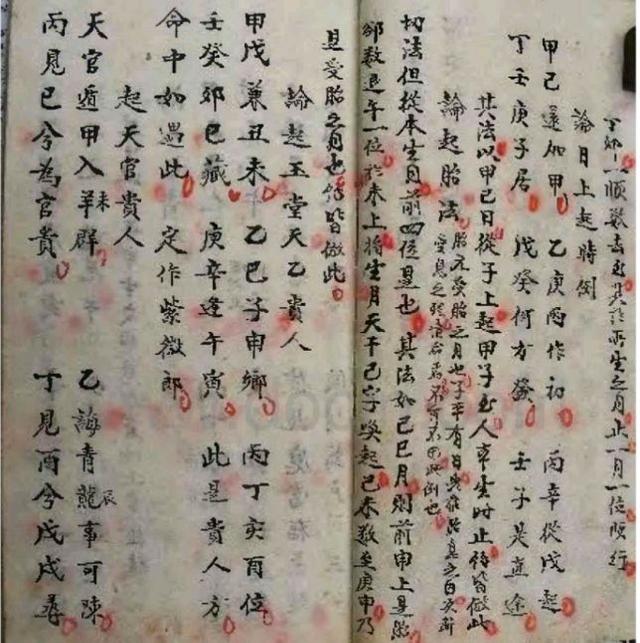 一順數去至其於所生之月止一月一位順行
論日上起時例
甲己還加甲 乙庚丙作初 丙辛從戊起
丁壬庚子居 戊癸何方發 壬子是直途
其法以甲己日從子上起甲子至人本生時止餘皆倣此
論起胎法 胎元受胎之月也子平有曰
切法但從本生月前四位是也 其法如己巳月則前申上是胎
卻數退午一位於未上將生月天干己字喚起己未數至庚申乃
是受胎之月也餘皆倣此
論起玉堂天乙貴人
甲戊兼丑未 乙巳子申鄉 丙丁亥酉位
壬癸卯巳藏 庚辛逢午寅 此是貴人方
命中如遇此 定作紫微郎
起天官貴人
天官遁甲入羊未群 乙誨青龍辰事可陳
丙見巳兮為官貴 丁見酉兮戊戌尋